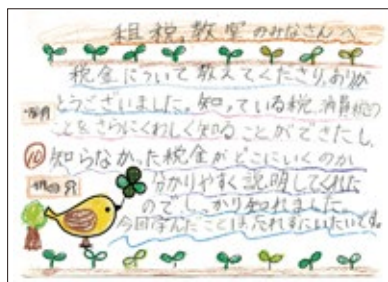 租税教室のみなさんへ
税金について教えてくださり、ありが
とうございました。知っている税、消費税の
ことをさらにくわしく知ることができたし、
知らなかった税金がどこにいくのか
分かりやすく説明してくれた
ので、しっかり知れました。
今回学んだことは忘れずにいたいです。